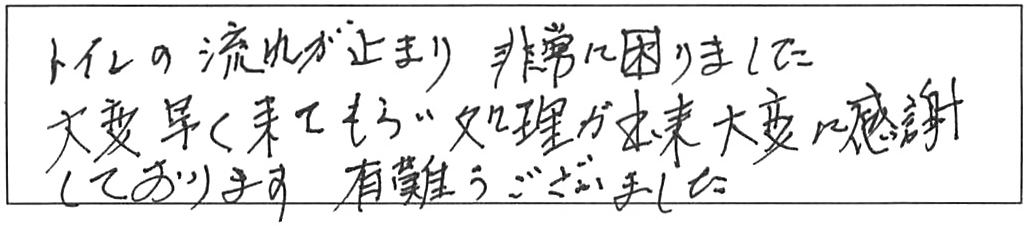 トイレの流れが止まり 非常に困りました
大変早く来てもらい処理が出来大変に感謝
しております 有難うございました